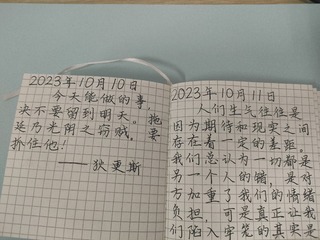 2023年10月10日
今天能做的事
决不要留到明天。拖
延乃光阴之窃贼。要
抓住他!
——狄更斯
2023年10月11日
人们生气往往是
因为期待和现实之间
存在着一定的差距。
我们总认为一切都是
另一个人的错，是对
方加重了我们的情绪
负担，可是真正让我
们陷入牢笼的其实是